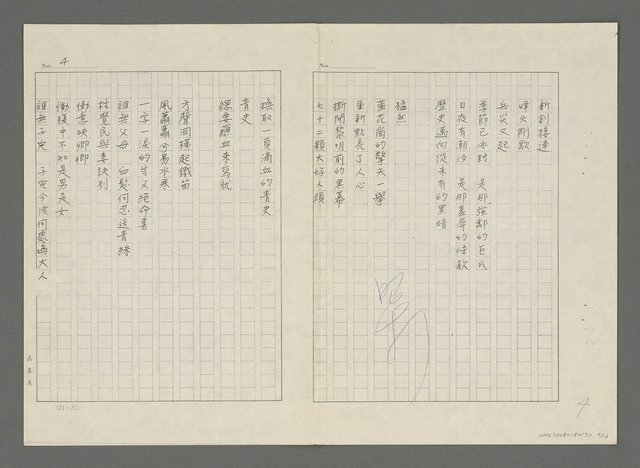 No.
新創接連
烽火剛歇
兵災又起
季節已冰封　是那強鄰的巨爪
日夜有潮汐　是那羞辱的條款
歷史邁向從未有的黑暗
猛然
黃花崗的擎天一舉
重新點亮了人心
撕開黎明前的黑幕
七十二顆大好人頭
4
No. 4
擷取一頁滴血的青史
青史
總要蘸血來寫就
方聲洞橫起鐵笛
風蕭蕭兮易水寒
一字一淚的告父絕命書
誰無父母　白髮何忍送青絲
林覺民與妻訣別
慟意映卿卿
慟腹中不知是男是女
誰無子兒　子兒今後何處無大人
(21×25)